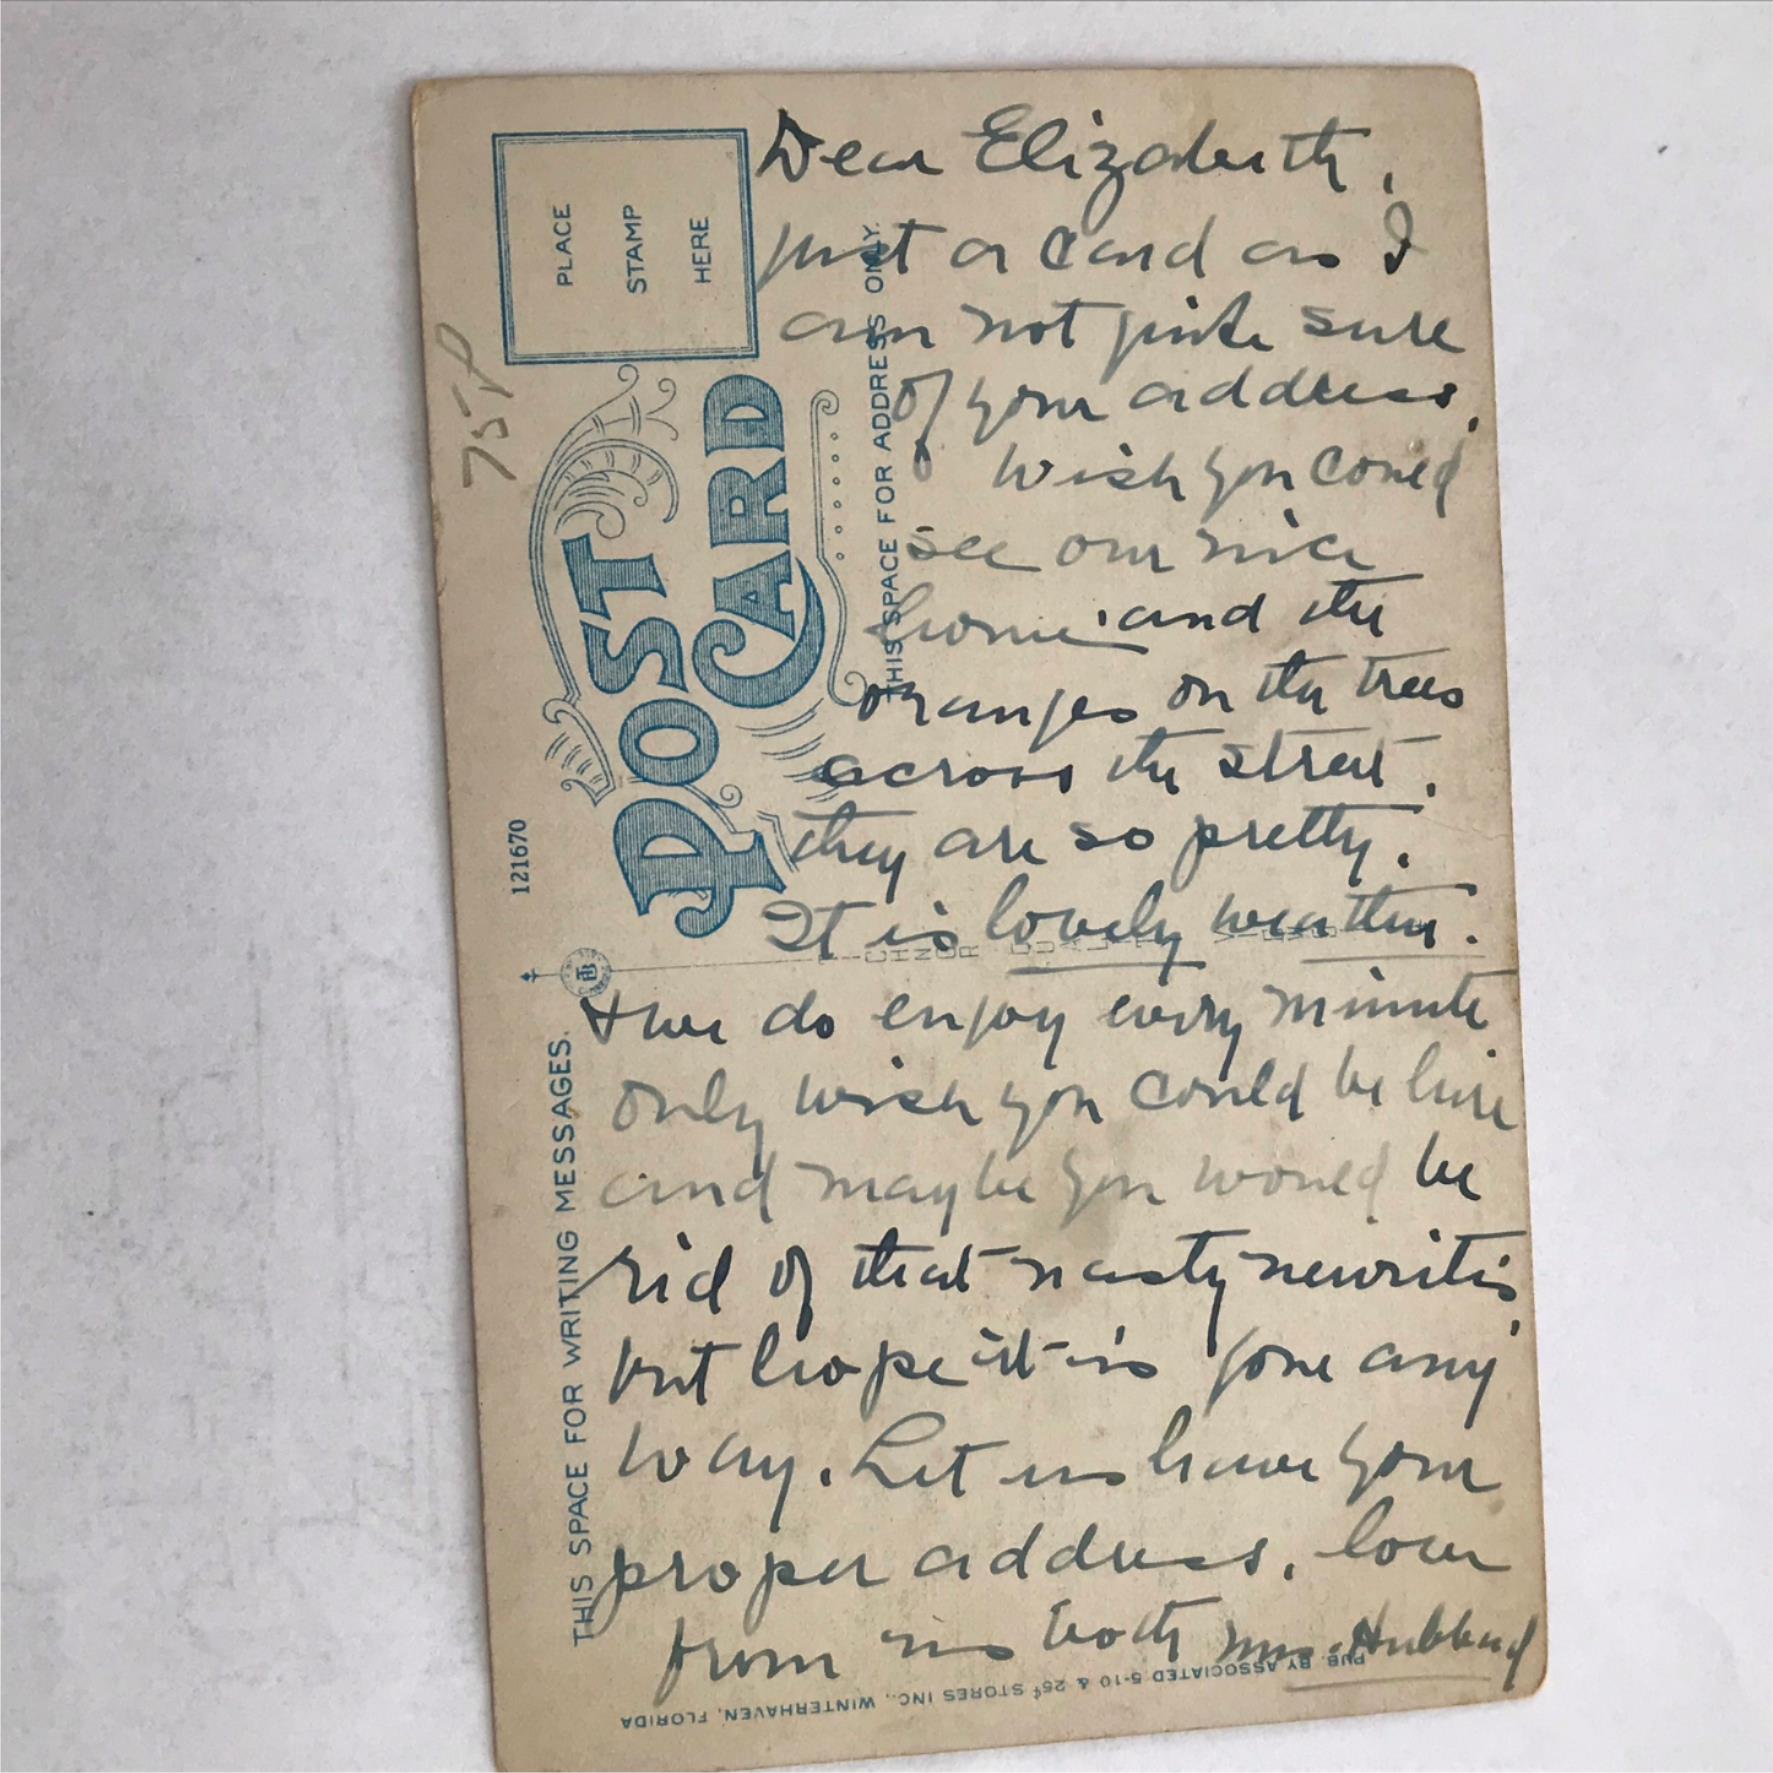 Dear Elizabeth,
just a card as I
am not quite sure
of your address.
Wish you could
see our nice
home and the
oranges on the trees
across the street.
they are so pretty.
It is lovely weather.
+ we do enjoy every minute
only wish you could be here
and maybe you would be
rid of that nasty neuritis,
but hope it is gone any
way. Let us have your
proper address. love
from us both Mrs. Hubbard
PLACE
STAMP
HERE
POST
CARD
THIS SPACE FOR ADDRESS ONLY.
121670
THIS SPACE FOR WRITING MESSAGES.
PUB. BY ASSOCIATED 5-10 & 25¢ STORES INC., WINTERHAVEN, FLORIDA